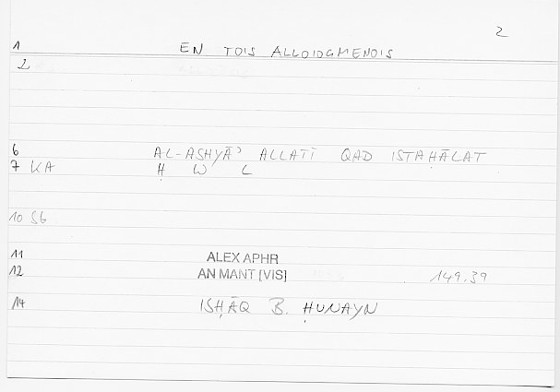 2
1 EN TOIS ALLOIOUMENOIS
2
6 AL-ASHYĀʾ ALLATĪ QAD ISTAḤĀLAT
7 KA Ḥ W L
10 SG
11 ALEX APHR
12 AN MANT [VIS] 149.39
14 ISḤĀQ B. ḤUNAYN